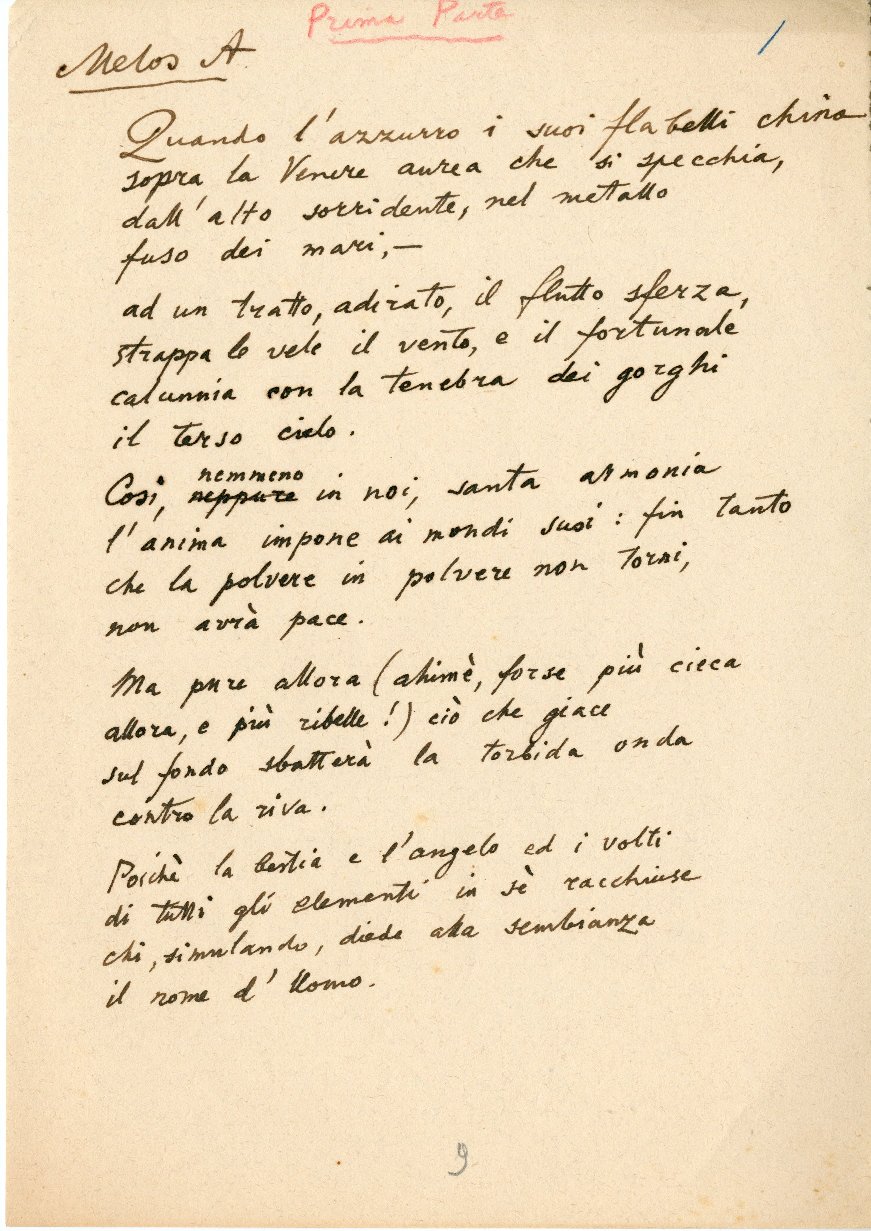 Prima Parte
1
Melos A
Quando l'azzurro i suoi flabelli china
sopra la Venere aurea che si specchia,
dall'alto sorridente, nel metallo
fuso dei mari,—
ad un tratto, adirato, il flutto sferza,
strappa le vele il vento, e il fortunale
calunnia con la tenebra dei gorghi
il terso cielo.
nemmeno
Così, neppure in noi, santa armonia
l'anima impone ai mondi suoi: fin tanto
che la polvere in polvere non torni,
non avrà pace.
Ma pure allora (ahimè, forse più cieca
allora, e più ribelle!) ciò che giace
sul fondo sbatterà la torbida onda
contro la riva.
Poichè la bestia e l'angelo ed i volti
di tutti gli elementi in sè racchiuse
chi, simulando, diede alla sembianza
il nome d'Uomo.
9